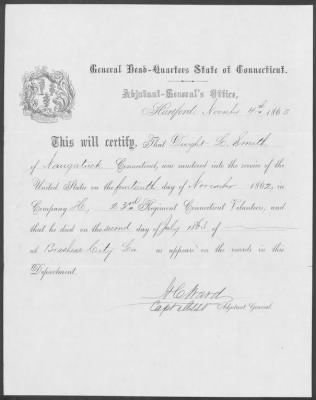 General Head-Quarters State of Connecticut.
Adjutant-General's Office,
Hartford, November 4th 1863
This will certify, That Dwight L. Smith
of Naugatuck Connecticut, was mustered into the service of the
United States on the fourteenth day of November 1862, in
Company H, 23rd Regiment Connecticut Volunteers, and
that he died on the second day of July 1863
at Brashear City La as appears on the records in this
Department.
H C Ward
Capt & Asst Adjutant General.